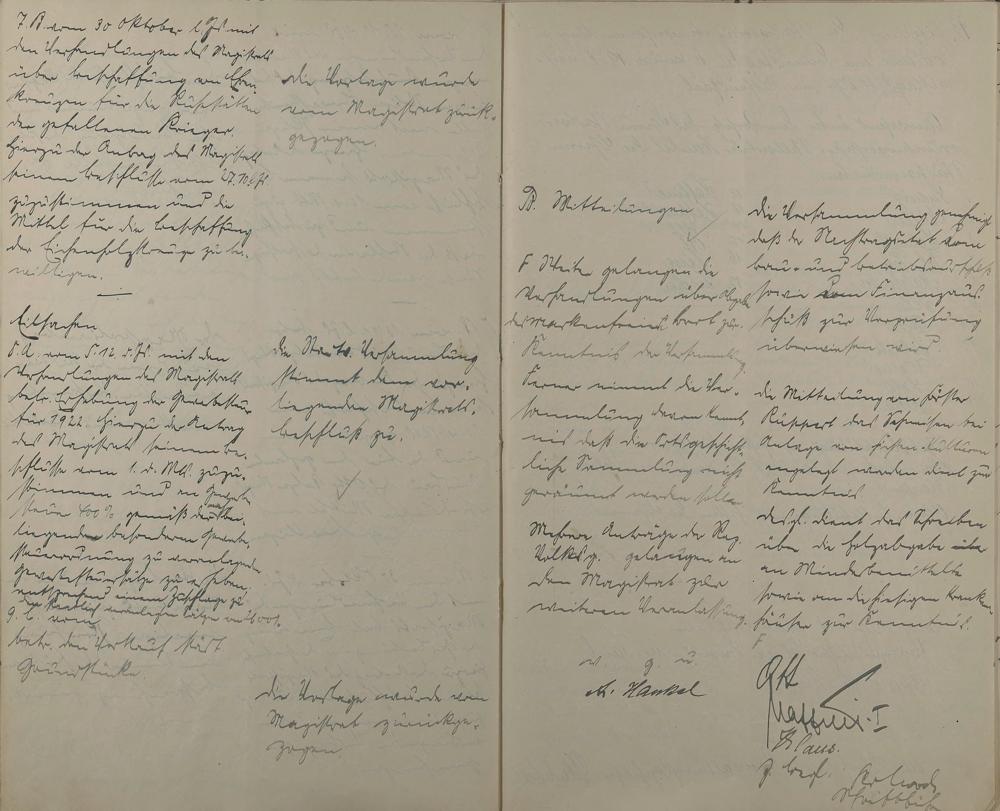 7 B. vom 30 Oktober l Js mit
den Verhandlungen des Magistrats
über Beschaffung von Ehren-
kreuzen für die Ruhestätten
der gefallenen Krieger.
Hierzu der Antrag des Magistrats
seinem Beschlusse vom 27.10. l Js
zuzustimmen und die
Mittel für die Beschaffung
der Eichenholzkreuze zu be-
willigen.
Die Vorlage wurde
vom Magistrat zurück-
gezogen.
Eilsachen
8. A. vom 5.12. d. Js. mit den
Verhandlungen des Magistrats
betr. Erhebung der Gewerbesteuer
für 1922. Hierzu der Antrag
des Magistrats seinem Be-
schlusse vom 1. d. Mts. zuzu-
stimmen und an Gewerbe-
steuer 400% gemäß der bei-
liegenden besonderen Gewerbe-
steuerordnung zu veranlagende
Gewerbesteuersätze zu erheben,
entsprechend einem Zuschlage zu
den staatlich veranlagten Sätzen von
Die Stadtv. Versammlung
stimmt dem vor-
liegenden Magistrats-
beschluß zu.
9. C. vom
betr. den Verkauf städt
Grundstücke.
Die Vorlage wurde vom
Magistrat zurückge-
zogen.
B. Mitteilungen
F Weiter gelangen die
Verhandlungen über
des Markenfreien Brot zur
Kenntnis der Versammlg.
Ferner nimmt die Ver-
sammlung davon Kennt-
nis daß die Ortsgeschicht-
liche Sammlung nicht
geräumt werden solle
Mehrere Anträge der
Volksp. gelangen an
den Magistrat zur
weiteren Veranlassung.
Die Versammlung genehmigt
daß der Nachtragsetat vom
Bau- und Betriebsausschuß
sowie vom Finanzaus-
schuß zur Vorprüfung
überwiesen wird.
Die Mitteilung von Förster
Ruppert das Schneisen bei
Anlage von Fichten-Kulturen
angelegt werden dient zur
Kenntnis
desgl. dient das Schreiben
über die Holzabgabe
an Minderbemittelte
sowie an die hiesigen Kranken-
häuser zur Kenntnis.
F
v g. u.
A. Hankel
Ott
Klaus.